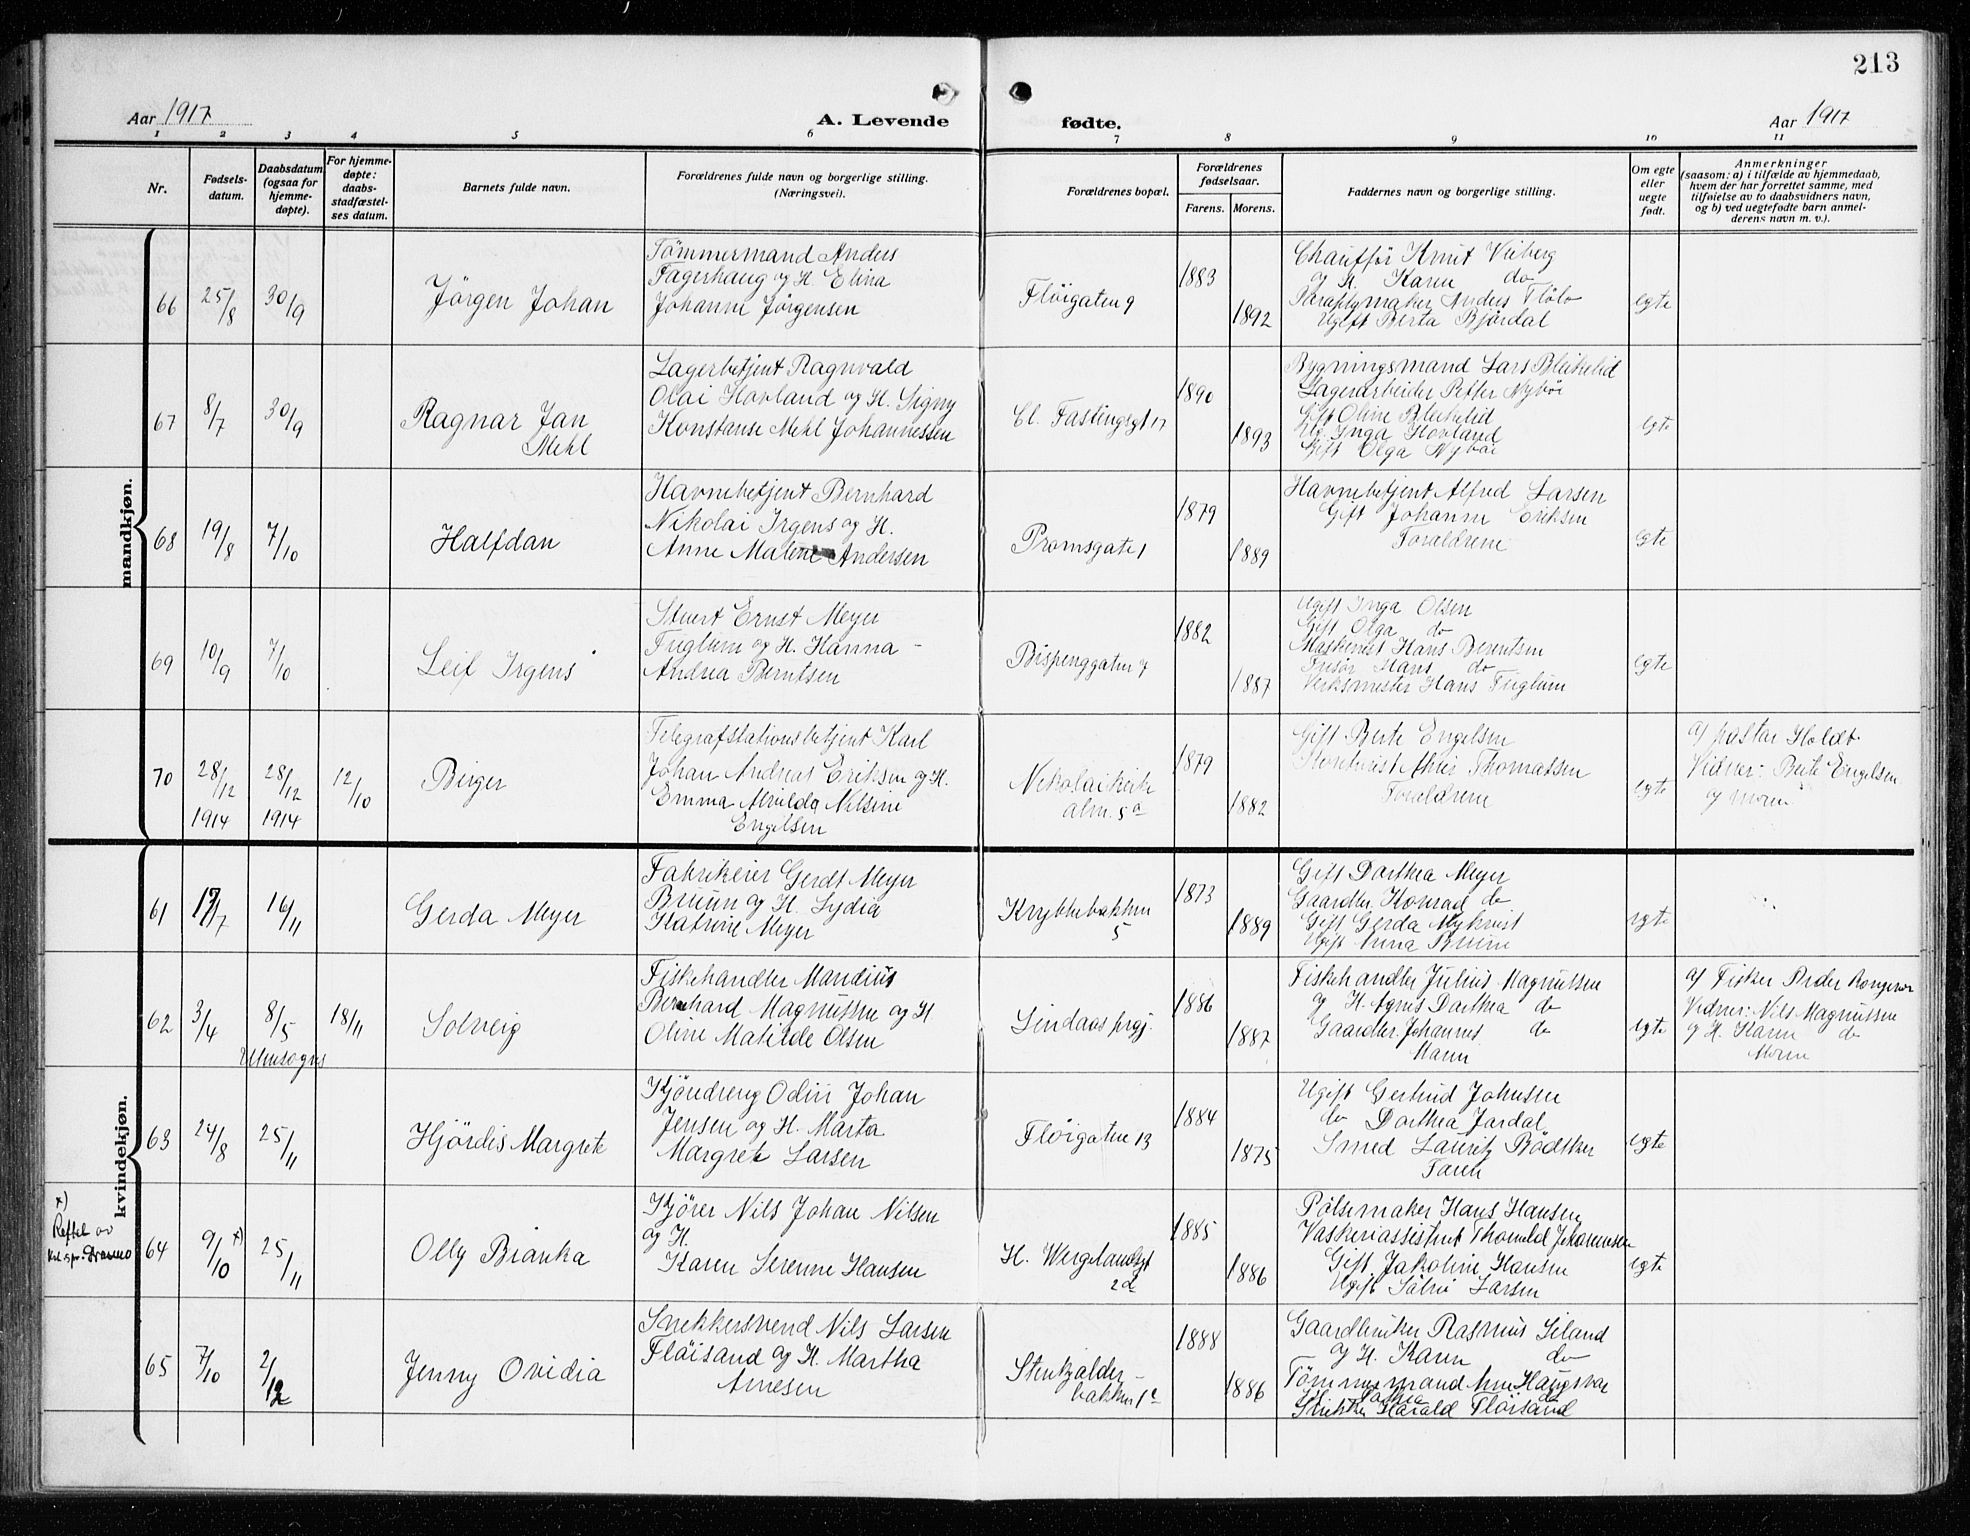 213
Aar 1917
A. Levende
fødte.
Aar 1917
1 2 3 4 5 6 7 8 9 10 11
Nr.
Fødsels-
datum.
Daabsdatum
(ogsaa for
hjemme-
døpte).
For hjemme-
døpte:
daabs-
stadfæstel-
ses datum.
Barnets fulde navn.
Forældrenes fulde navn og borgerlige stilling.
(Næringsvei).
Forældrenes bopæl.
Forældrenes
fødselsaar.
Farens. Morens.
Faddernes navn og borgerlige stilling.
Om egte
eller
uegte
født.
Anmerkninger
(saasom: a) i tilfælde av hjemmedaab,
hvem der har forrettet samme, med
tilføielse av to daabsvidners navn,
og b) ved uegtefødte barn anmel-
derens navn m. v.).
mandkjøn.
66
25/8
30/9
Jörgen Johan
Tömmermand Anders
Fagerhaug og H. Elina
Johanne Jörgensen
Flöigaten 9
1883
1892
Chauffør Knut Viiberg
og H. Karen do
Paraplymaker Anders Flölo
Ugift Berta Björdal
egte
67
8/7
30/9
Ragnar Jan
Mehl
Lagerbetjent Ragnvald
Olai Hovland og H. Signy
Konstanse Mehl Johannessen
Cl. Fastingsgt 17
1890
1893
Bygningsmand Lars Bleikelid
Lagerarbeider Petter Nybøe
Gift Oline Bleikelid
Ug. Inga Hovland
Gift Olga Nybøe
egte
68
19/8
7/10
Halfdan
Havnebetjent Bernhard
Nikolai Irgens og H.
Anne Malene Andersen
Promsgate 1
1879
1889
Havnebetjent Alfred Larsen
Gift Johanne Eriksen
Forældrene
egte
69
10/9
7/10
Leif Irgens
Stuert Ernst Meyer
Fuglum og H. Hanna
Andrea Berntsen
Bispenggaten 7
1882
1887
Ugift Inga Olsen
Gift Olga do
Maskinist Hans Berentsen
Frisør Hans do
Verksmester Hans Fuglum
egte
70
28/12
1914
28/12
1914
12/10
Birger
Telegrafstationsbetjent Karl
Johan Andreas Eriksen og H.
Emma Alvilda Nilsine
Engelsen
Nikolaikirke
alm. 5a
1879
1882
Gift Berte Engelsen
Thomassen
Forældrene
egte
a/ pastor Holdt
Vidner: Berte Engelsen
og moren
kvindekjøn.
61
17/7
16/11
Gerda Meyer
Fabrikeier Gerdt Meyer
Bruun og H. Lydia
Katrine Meyer
Krybbebakken
5
1873
1889
Gift Dorthea Meyer
Gaardbr. Konrad do
Gift Gerda Mykvist
Ugift Anna Bruun
egte
62
3/4
8/5
18/11
Utensogns
Solveig
Fiskehandler Mandius
Bernhard Magnussen og H
Oline Matilde Olsen
Lindaas prgj.
1886
1887
Fiskehandler Julius Magnussen
og H. Agnes Dorthea do
Gaardbr. Johannes do
Maren
egte
a/ Fisker Peder
Vidner: Nils Magnussen
og H. Karen do
Moren
63
24/8
25/11
Hjördis Margrete
Kjöredreng Odin Johan
Jensen og H. Marta
Margrete Larsen
Flöigaten 13
1884
1875
Ugift Gertrud Johnsen
do Dorthea Jordal
Smed Lauritz Bödtker
Faren
egte
x)
Rettet av
64
9/10 x)
25/11
Olly Bianka
Kjörer Nils Johan Nilsen
og H.
Karen Serenne Hansen
H. Wergelandsgt
2d
1885
1886
Pölsemaker Hans Hansen
Vaskeriassistent Thomold Johannesen
Gift Jakoline Hansen
Ugift Larsen
egte
65
7/10
2/12
Jenny Ovidia
Snekkersvend Nils Larsen
Flöisand og H. Martha
Arnesen
Stenkjelder-
bakken 1c
1888
1886
Gaardbruker Rasmus Seland
og H. Karen do
Tömmermand
Snekker Harald Flöisand